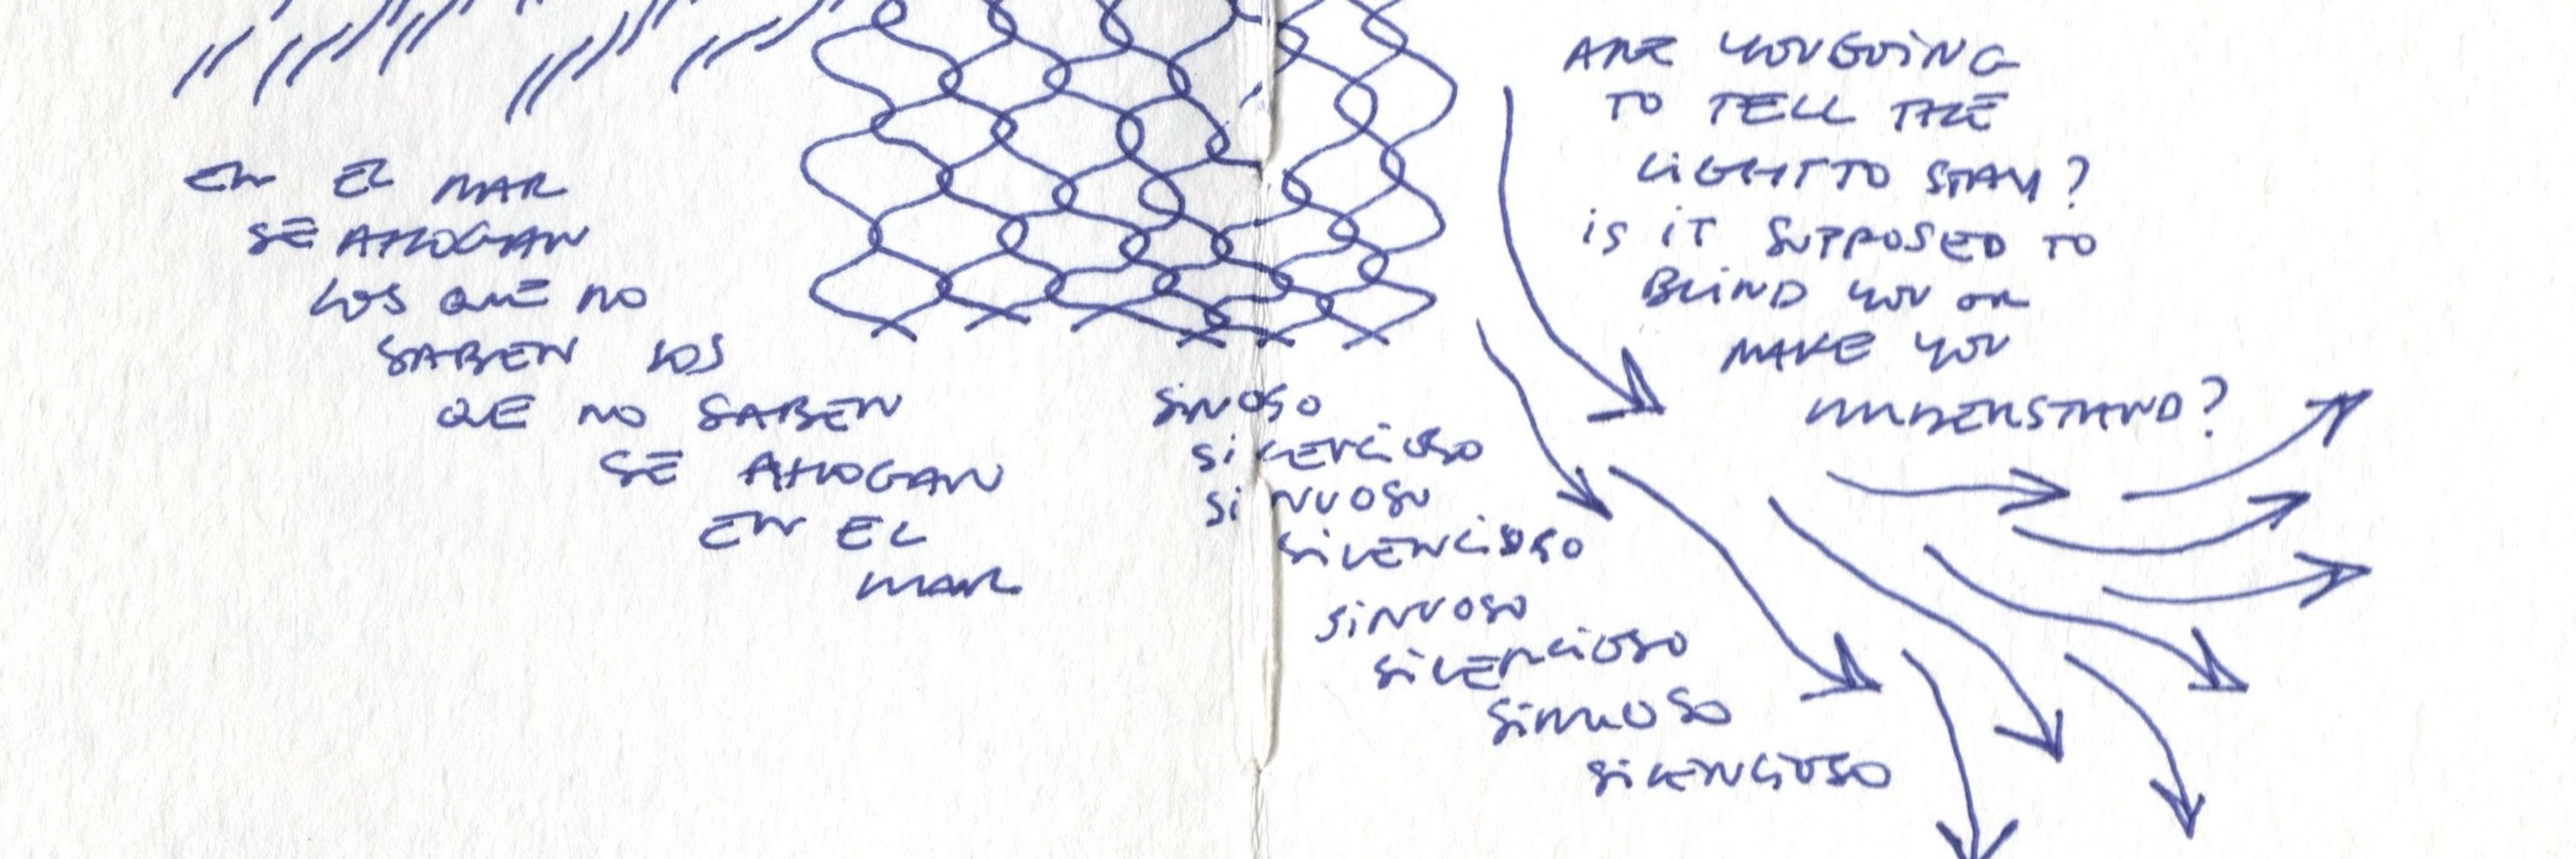 EN EL MAR
SE AHOGAN
LOS QUE NO
SABEN LOS
QUE NO SABEN
SE AHOGAN
EN EL
MAR
SINOSO
SILENCIOSO
SINUOSO
SILENCIOSO
SINUOSO
SILENCIOSO
SINUOSO
SILENCIOSO
ARE YOU GOING
TO TELL THE
LIGHT TO STAY?
IS IT SUPPOSED TO
BLIND YOU OR
MAKE YOU
UNDERSTAND?